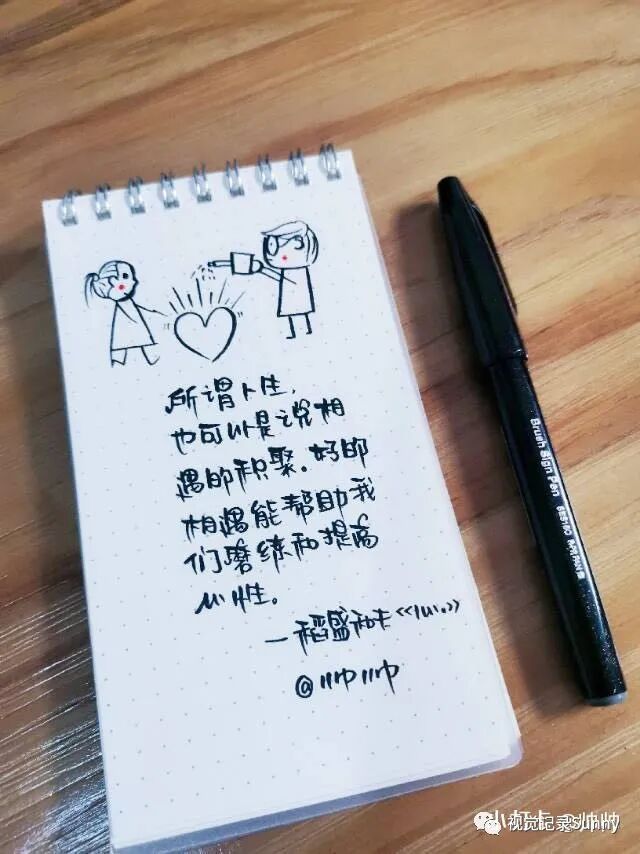 所谓人生，
也可以是说相
遇的积聚。好的
相遇能帮助我
们磨练和提高
心性。
—稻盛和夫《心。》
@帅帅
Brush Sign Pen
视觉纪录Sunny